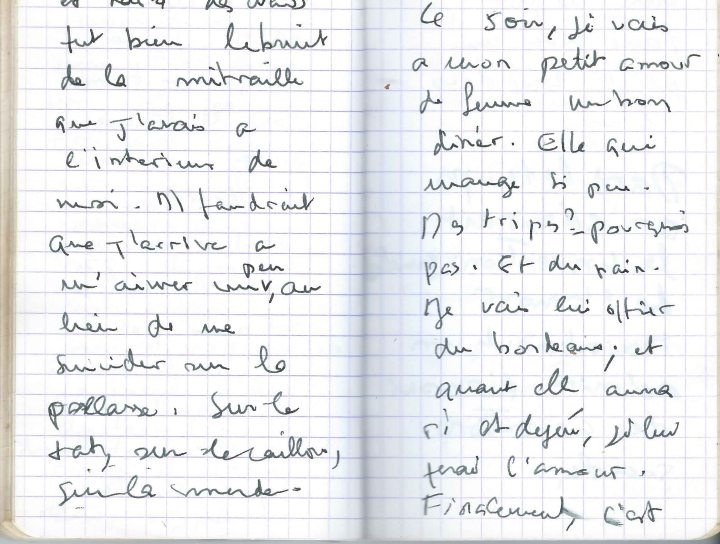 fut bien le bruit
de la mitraille
que j'avais a
l'interieur de
moi. Il faudrait
que j'arrive a
m'aimer un peu, au
lieu de me
suicider sur la
paillasse. Sur le
sur le caillou,
sur la merde.
Ce soir, je vais
a mon petit amour
de femme un bon
dîner. Elle qui
mange si peu.
Des trips? pourquoi
pas. Et du pain.
Je vais lui offrir
du bordeaux, et
quant elle aura
ri et digéré, je lui
ferai l'amour.
Finalement, c'est